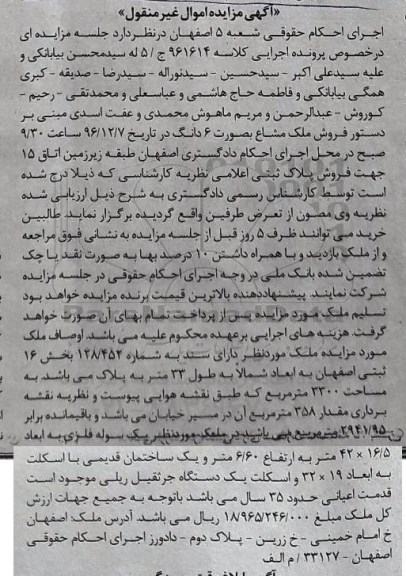 «آگهی مزایده اموال غیر منقول»
اجرای احکام حقوقی شعبه ۵ اصفهان درنظردارد جلسه مزایده ای
درخصوص پرونده اجرایی کلاسه ۹۶۱۶۱۴ ج / ۵ له سیدمحسن بیابانکی و
علیه سیدعلی اکبر - سیدحسین - سیدنوراله - سیدرضا - صدیقه - کبری
همگی بیابانکی و فاطمه حاج هاشمی و عباسعلی و محمدتقی - رحیم -
کوروش - عبدالرحمن و مریم ماهوش محمدی و عفت اسدی مبنی بر
دستور فروش ملک مشاع بصورت ۶ دانگ در تاریخ ۹۶/۱۲/۷ ساعت ۹/۳۰
صبح در محل اجرای احکام دادگستری اصفهان طبقه زیرزمین اتاق ۱۵
جهت فروش پلاک ثبتی اعلامی نظریه کارشناسی که ذیلا درج شده
است توسط کارشناس رسمی دادگستری به شرح ذیل ارزیابی شده
نظریه وی مصون از تعرض طرفین واقع گردیده برگزار نماید. طالبین
خرید می توانند ظرف ۵ روز قبل از جلسه مزایده به نشانی فوق مراجعه
و از ملک بازدید و با همراه داشتن ۱۰ درصد بها به صورت نقد یا چک
تضمین شده بانک ملی در وجه اجرای احکام حقوقی در جلسه مزایده
شرکت نمایند. پیشنهاددهنده بالاترین قیمت برنده مزایده خواهد بود
تسلیم ملک مورد مزایده پس از پرداخت تمام بهای آن صورت خواهد
گرفت. هزینه های اجرایی برعهده محکوم علیه می باشد. اوصاف ملک
مورد مزایده ملک موردنظر دارای سند به شماره ۱۲۸/۴۵۲ بخش ۱۶
ثبتی اصفهان به ابعاد شمالا به طول ۳۳ متر به پلاک می باشد. به
مساحت ۳۳۰۰ مترمربع که طبق نقشه هوایی پیوست و نظریه نقشه
برداری مقدار ۳۵۸ مترمربع آن در مسیر خیابان می باشد و باقیمانده برابر
۲۹۴۱/۹۵ مترمربع می باشد در ملک موردنظر یک سوله فلزی به ابعاد
۱۶/۵ × ۴۲ متر به ارتفاع ۶/۶۰ متر و یک ساختمان قدیمی با اسکلت
به ابعاد ۱۹ × ۳۲ و اسکلت یک دستگاه جرثقیل ریلی موجود است
قدمت اعیانی حدود ۳۵ سال می باشد باتوجه به جمیع جهات ارزش
کل ملک مبلغ ۱۸/۹۶۵/۲۴۶/۰۰۰ ریال می باشد. آدرس ملک: اصفهان
خ امام خمینی - خ زرین - پلاک دوم - دادورز اجرای احکام حقوقی
اصفهان - ۳۳۱۲۷ / م الف